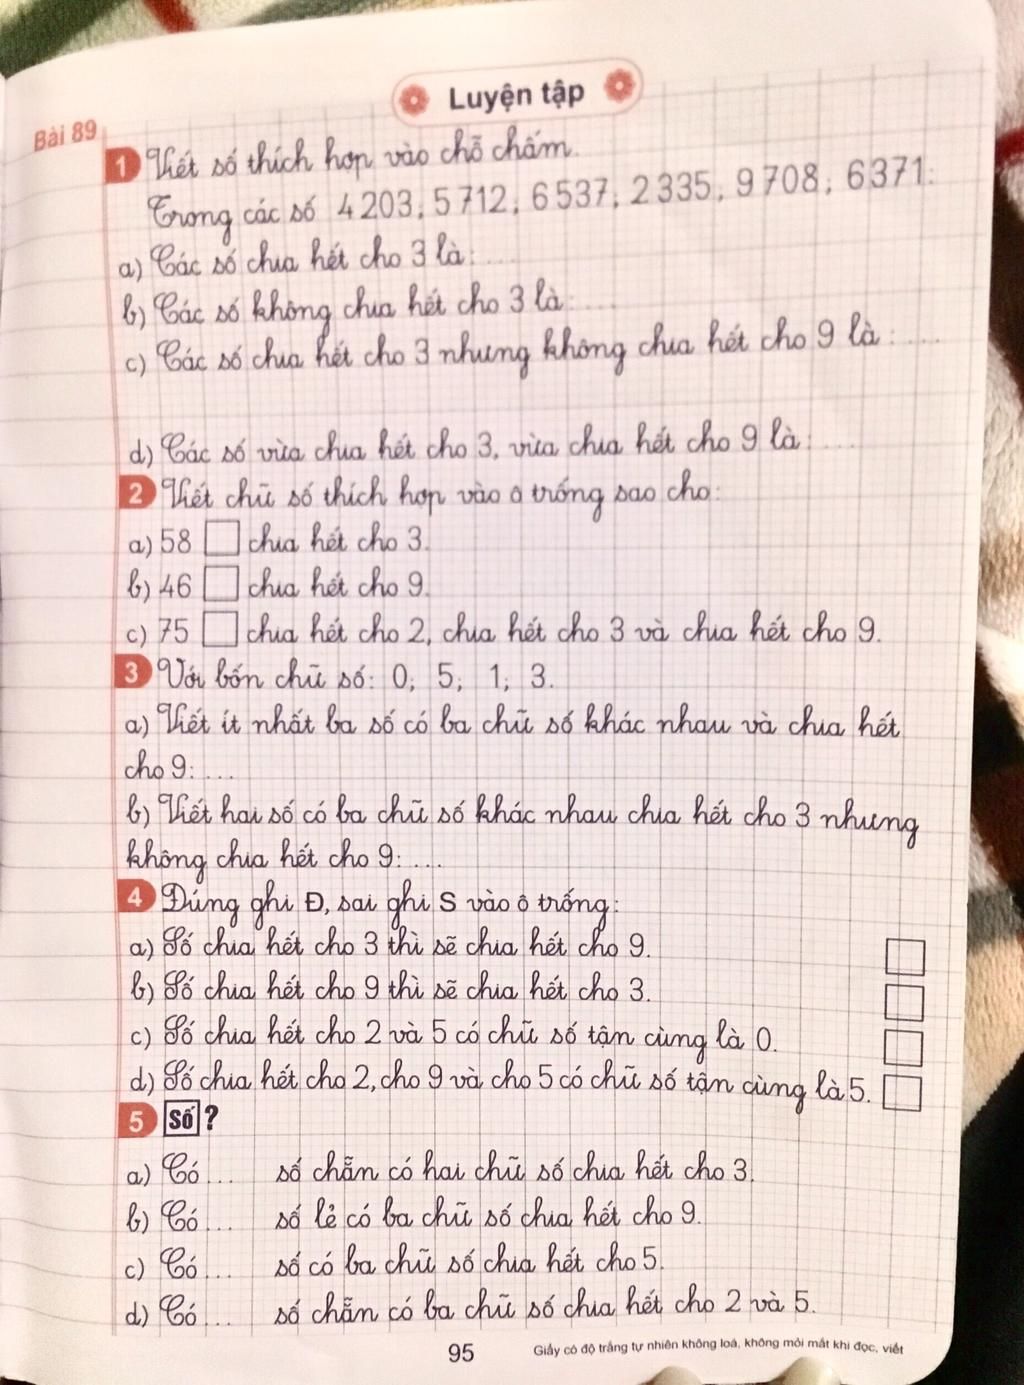 Luyện tập
Bài 89
1 Viết số thích hợp vào chỗ chấm.
Trong các số 4 203; 5 712; 6 537; 2 335; 9 708; 6 371:
a) Các số chia hết cho 3 là: ....
b) Các số không chia hết cho 3 là: ....
c) Các số chia hết cho 3 nhưng không chia hết cho 9 là: ....
d) Các số vừa chia hết cho 3, vừa chia hết cho 9 là: ....
2 Viết chữ số thích hợp vào ô trống sao cho:
a) 58 □ chia hết cho 3.
b) 46 □ chia hết cho 9.
c) 75 □ chia hết cho 2, chia hết cho 3 và chia hết cho 9.
3 Với bốn chữ số: 0; 5; 1; 3.
a) Viết ít nhất ba số có ba chữ số khác nhau và chia hết
cho 9: ...
b) Viết hai số có ba chữ số khác nhau chia hết cho 3 nhưng
không chia hết cho 9: ...
4 Đúng ghi Đ, sai ghi S vào ô trống:
a) Số chia hết cho 3 thì sẽ chia hết cho 9. □
b) Số chia hết cho 9 thì sẽ chia hết cho 3. □
c) Số chia hết cho 2 và 5 có chữ số tận cùng là 0. □
d) Số chia hết cho 2, cho 9 và cho 5 có chữ số tận cùng là 5. □
5 Số ?
a) Có ... số chẵn có hai chữ số chia hết cho 3.
b) Có ... số lẻ có ba chữ số chia hết cho 9.
c) Có ... số có ba chữ số chia hết cho 5.
d) Có ... số chẵn có ba chữ số chia hết cho 2 và 5.
95
Giấy có độ trắng tự nhiên không loá, không mỏi mắt khi đọc, viết